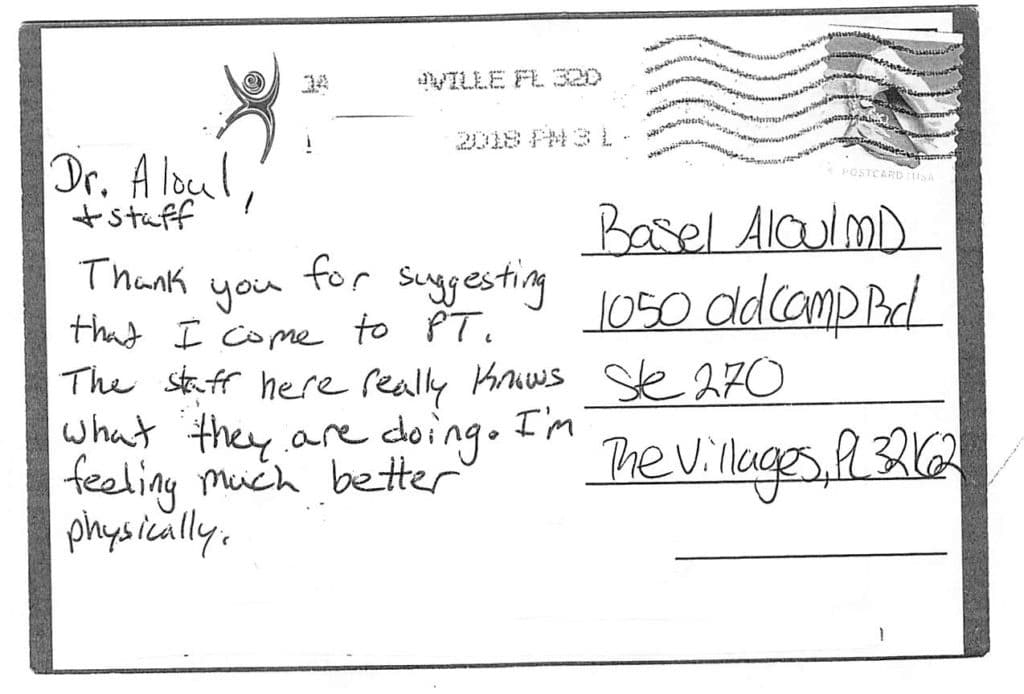 JA VILLE FL 320
2018 PM 3 L
POSTCARD USA
Dr. Aloul,
+ staff
Thank you for suggesting
that I come to PT.
The staff here really knows
what they are doing. I'm
feeling much better
physically.
Basel Aloul MD
1050 Old Camp Rd
Ste 270
The Villages, FL 32162